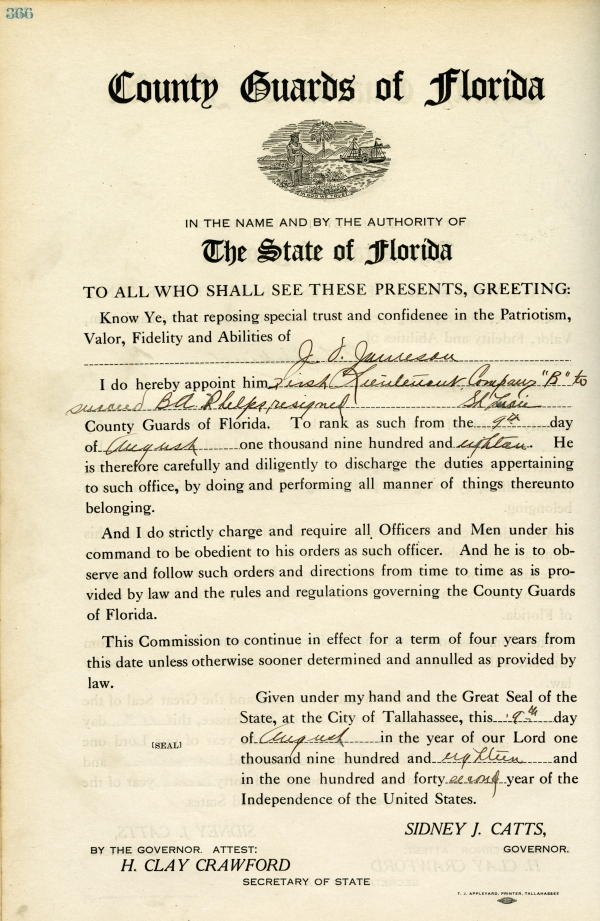 366
County Guards of Florida
IN THE NAME AND BY THE AUTHORITY OF
The State of Florida
TO ALL WHO SHALL SEE THESE PRESENTS, GREETING:
Know Ye, that reposing special trust and confidenee in the Patriotism,
Valor, Fidelity and Abilities of
J. O. Jamieson
I do hereby appoint him First Lieutenant Company "B" to
succeed B A Phelps, resigned St Lucie
County Guards of Florida. To rank as such from the 9th day
of August one thousand nine hundred and eighteen. He
is therefore carefully and diligently to discharge the duties appertaining
to such office, by doing and performing all manner of things thereunto
belonging.
And I do strictly charge and require all Officers and Men under his
command to be obedient to his orders as such officer. And he is to ob-
serve and follow such orders and directions from time to time as is pro-
vided by law and the rules and regulations governing the County Guards
of Florida.
This Commission to continue in effect for a term of four years from
this date unless otherwise sooner determined and annulled as provided by
law.
Given under my hand and the Great Seal of the
State, at the City of Tallahassee, this 9th day
[SEAL] of August in the year of our Lord one
thousand nine hundred and eighteen and
in the one hundred and forty second year of the
Independence of the United States.
SIDNEY J. CATTS,
BY THE GOVERNOR. ATTEST: GOVERNOR.
H. CLAY CRAWFORD
SECRETARY OF STATE
T. J. APPLEYARD, PRINTER, TALLAHASSEE